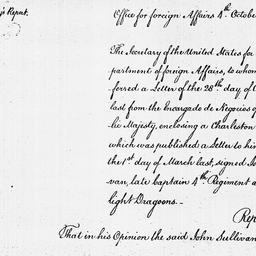 y's Report.
Office for foreign Affairs 4th October
The Secretary of the United States for
partment of foreign Affairs, to whom
ferred a Letter of the 28th day of
last from the Encargado de Negocios of
lic Majesty, enclosing a Charleston
which was published a Letter to his
the 1st day of March last, signed Jo
van, late Captain 4th Regiment a
light Dragoons.—
Rep
That in his Opinion the said John Sullivan